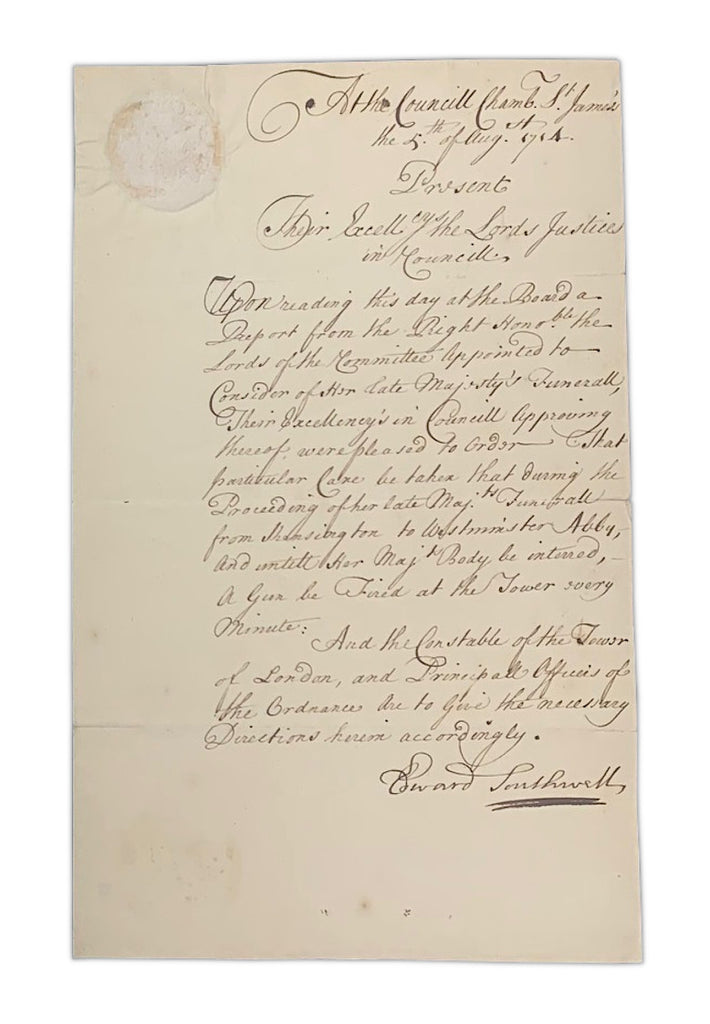 At the Councill Chamb. St. James's
the 5.th of Aug.st 1714.
Present
Their Excellcys the Lords Justices
in Councill.
Upon reading this day at the Board a
Report from the Right Honoble. the
Lords of the Committee Appointed to
Consider of Her late Majesty's Funerall,
Their Excellency's in Councill Approving
thereof, were pleased to Order That
particular Care be taken that during the
Proceeding of her late Maj.ts Funerall
from Kensington to Westminster Abby,
And untill Her Maj.ts Body be interred,
A Gun be Fired at the Tower every
Minute:
And the Constable of the Tower
of London, and Principall Officers of
the Ordnance are to Give the necessary
Directions herein accordingly.
Edward Southwell